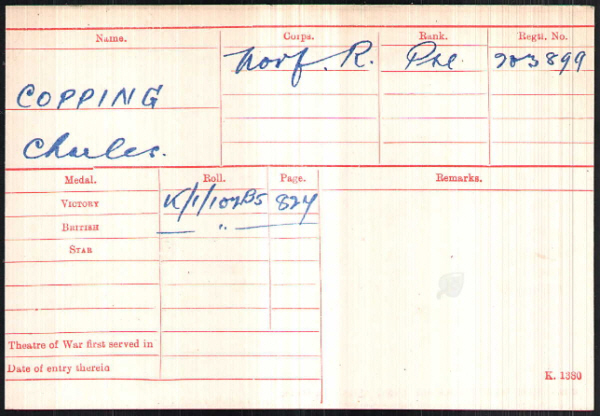 Name. Corps. Rank. Regtl. No.
Norf. R. Pte. 203899
COPPING
Charles.
Medal. Roll. Page. Remarks.
VICTORY K/1/102B5 824
BRITISH — „ —
STAR
Theatre of War first served in
Date of entry therein
K. 1380